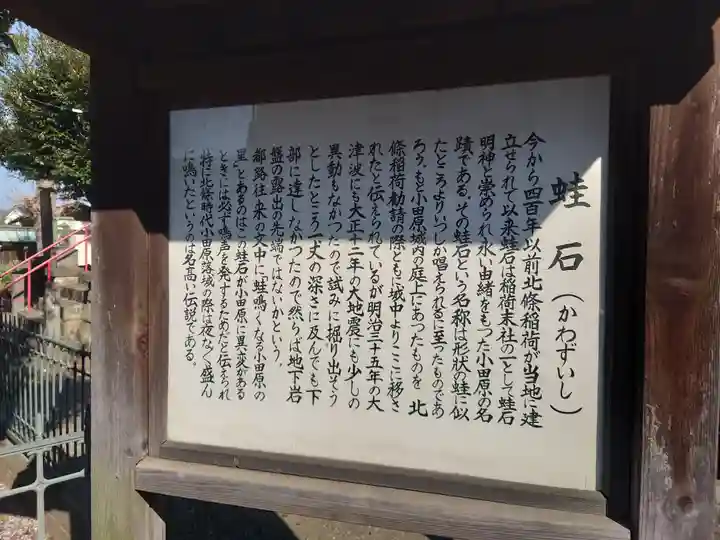 蛙石（かわずいし）
今から四百年以前北條稲荷が当地に建
立せられて以来蛙石は稲荷末社の一として蛙石
明神と崇められ永い由緒をもつた小田原の名
蹟である。その蛙石という名称は形状の蛙に似
たところよりいつしか唱えられるに至つたものであ
ろう。もと小田原城内の庭上にあつたものを 北
條稲荷勧請の際ともに城中よりここに移さ
れたと伝えられているが明治三十五年の大
津波にも大正十二年の大地震にも少しの
異動もなかつたので試みに掘り出そう
としたところ一丈の深さに及んでも下
部に達しなかつたので然らば地下岩
盤の露出の先端ではないかという。
都路往来の文中に蛙鳴くなる小田原の
里とあるのはこの蛙石が小田原に異変がある
ときには必ず鳴声を発するためだと伝えられ
特に北條時代小田原落城の際は夜なく盛ん
に鳴いたというのは名高い伝説である。